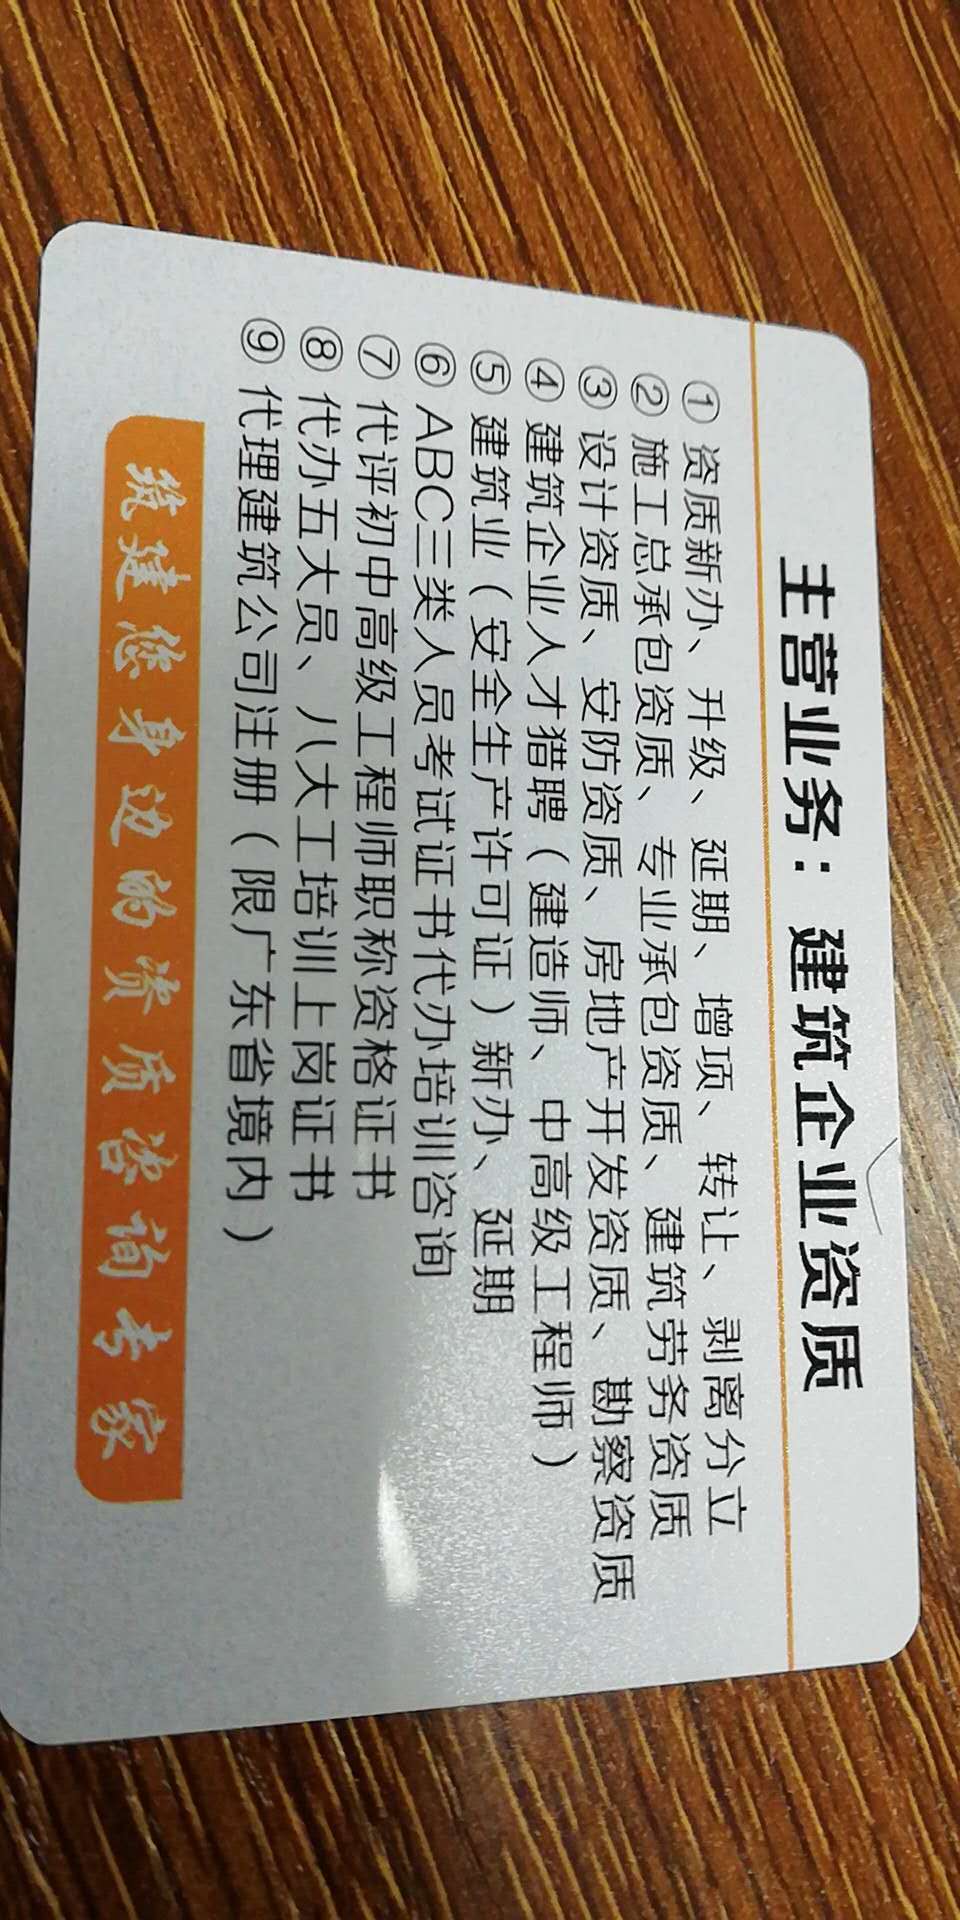 主营业务：建筑企业资质
① 资质新办、升级、延期、增项、转让、剥离分立
② 施工总承包资质、专业承包资质、建筑劳务资质
③ 设计资质、安防资质、房地产开发资质、勘察资质
④ 建筑企业人才猎聘（建造师、中高级工程师）
⑤ 建筑业（安全生产许可证）新办、延期
⑥ ABC三类人员考试证书代办培训咨询
⑦ 代评初中高级工程师职称资格证书
⑧ 代办五大员、八大工培训上岗证书
⑨ 代理建筑公司注册（限广东省境内）
筑建您身边的资质咨询专家